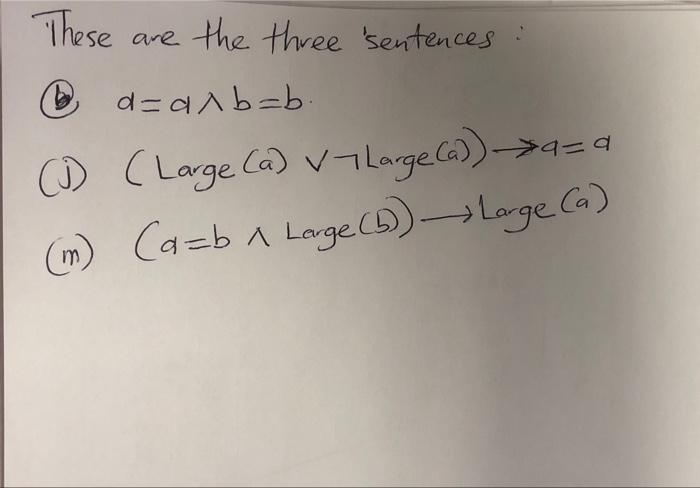 These are the three sentences :
(b) a=a∧b=b.
(j) (Large(a) ∨¬Large(a))→a=a
(m) (a=b ∧ Large(b))→Large(a)